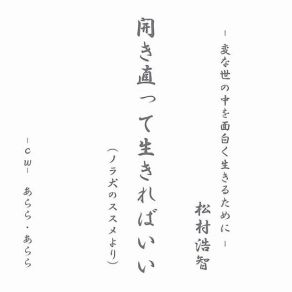 －変な世の中を面白く生きるために－
松村浩智
開き直って生きればいい
（ノラ犬のススメより）
－cw－ あらら・あらら